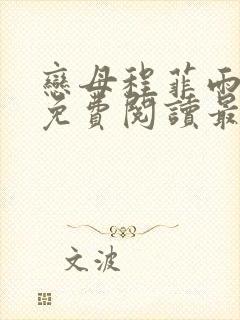 戀母程菲雨
免費閱讀最
文波